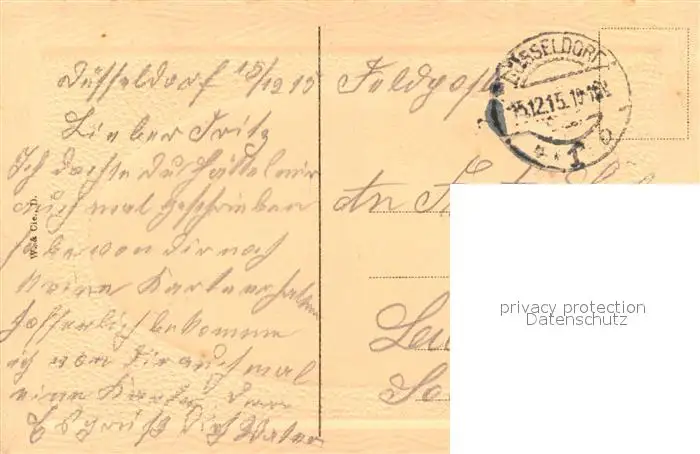 Düsseldorf 15/12 15
Lieber Fritz
Ich dachte du hättest mir
auch mal geschrieben
habe von dir noch
keine Karte erhalten
hoffentlich bekomme
ich von dir auch mal
eine Karte
Es grüßt dich Vater
W. & Cie., D.
Feldpost
DÜSSELDORF
15.12.15.
An
privacy protection
Datenschutz